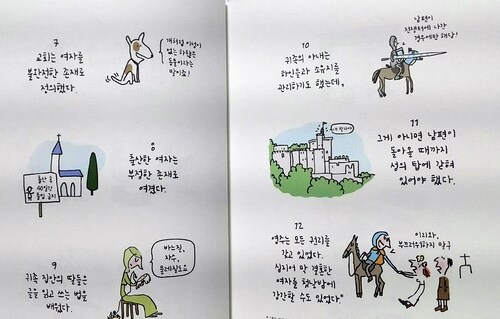 7
교회는 여자를
불완전한 존재로
정의했다.
개처럼 이성이
없는 하찮은
동물이라는
말이죠!
8
출산한 여자는
부정한 존재로
여겼다.
출산 후
40일간
출입 금지
9
귀족 집안의 딸들은
글을 읽고 쓰는 법을
배웠다.
바느질,
자수,
물레질도요
10
귀족의 아내는
하인들과 소유지를
관리하기도 했는데,
남편이
전쟁터에 나간
경우에만 해당!
11
그게 아니면 남편이
돌아올 때까지
성의 탑에 갇혀
있어야 했다.
12
영주는 모든 권리를
갖고 있었다.
심지어 막 결혼한
여자를 첫날밤에
강간할 수도 있었다.
이리와,
부끄러워하지 말구